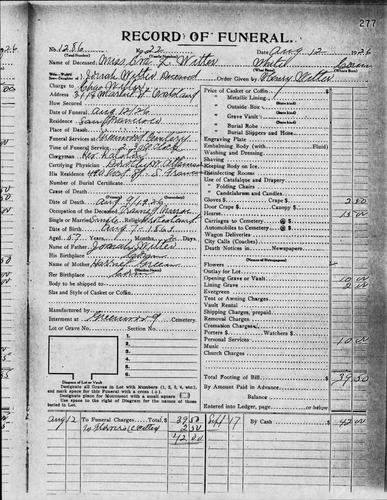 277
RECORD OF FUNERAL
No. 1286 No. 22 Date Aug 12 1926
(Total Number) (Yearly Number)
Name of Deceased Miss Eva L Witter White
(What Race) (Where Born)
Josiah Witter Deceased Order Given by Witter
Charge to
Address
How Secured
Date of Funeral Aug 12/26
Residence San Francisco
Place of Death
Funeral Services at Cemetery
Time of Funeral Service 2.30 O'clock
Clergyman
Certifying Physician
His Residence
Number of Burial Certificate
Cause of Death
Date of Death Aug 9/1926
Occupation of the Deceased
Single or Married Single Religion
Date of Birth Aug 7-1863
Aged 57 Years Months Days
Name of Father Josiah Witter
His Birthplace
Name of Mother Harriet Green
Her Birthplace
Body to be shipped to
Size and Style of Casket or Coffin
Manufactured by
Interment at Cemetery
Lot or Grave No. Section No.
1
2
3
4
5
6
Diagram of Lot or Vault
Designate all Graves in Lot with Numbers (1, 2, 3, 4, etc.), and mark space for this Funeral with a cross (x).
Designate place for Monument with a small square
Use space to right of Diagram for the names of those buried in Lot.
Price of Casket or Coffin
" Metallic Lining
" Outside Box
" Grave Vault
" Burial Robe
" Burial Slippers and Hose
Engraving Plate
Embalming Body (with Fluid)
Washing and Dressing
Shaving
Keeping Body on Ice
Disinfecting Rooms
Use of Catafalque and Drapery
" Folding Chairs
" Candelabrum and Candles
Gloves $ Crape $ 2.50
Door Crape $ Candy $
Hearse 15 00
Carriages to Cemetery @ $
Automobiles to Cemetery @ $
Wagon Deliveries
City Calls (Coaches)
Death Notices in Newspapers
(Names of Newspapers)
Flowers
Outlay for Lot
Opening Grave or Vault 10 00
Lining Grave 2 00
Evergreen
Tent or Awning Charges
Vault Rental
Shipping Charges, prepaid
Removal Charges
Cremation Charges
Porters $ Watchers $
Personal Services 10 00
Music
Church Charges
Total Footing of Bill $ 39 50
By Amount Paid in Advance
Balance
Entered into Ledger, page or below
Aug 12 To Funeral Charges Total, $ 39 50 Sept 17 By Cash $ 42 00
To Flowers 2 50
42 00